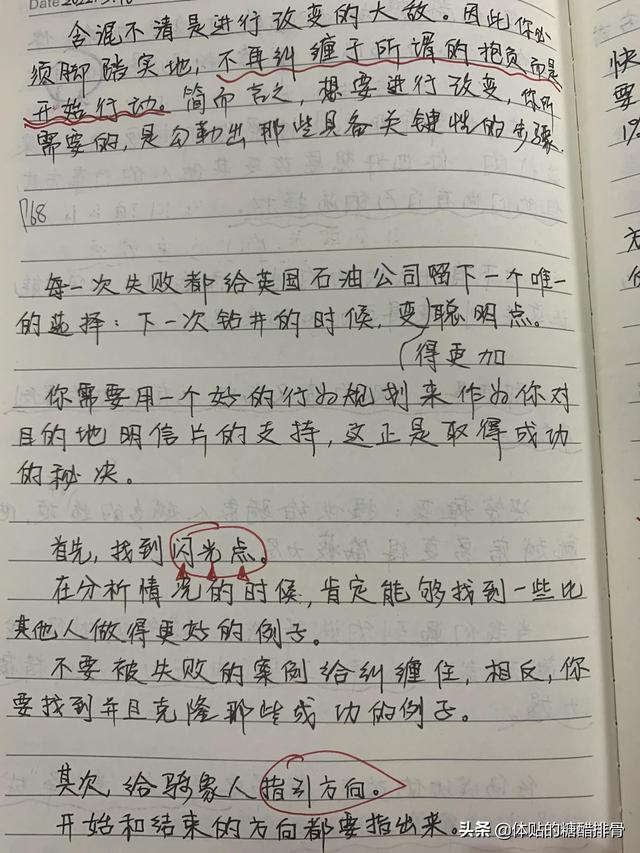 Date
含混不清是进行改变的大敌。因此你必
须脚踏实地，不再纠缠于所谓的抱负而是
开始行动。简而言之，想要进行改变，你所
需要的，是勾勒出那些具备关键性的步骤。
P68
每一次失败都给英国石油公司留下一个唯一
的选择：下一次钻井的时候，变聪明点。
得更加
你需要用一个好的行为规划来作为你对
目的地明信片的支持，这正是取得成功
的秘决。
首先，找到闪光点。
在分析情况的时候，肯定能够找到一些比
其他人做得更好的例子。
不要被失败的案例给纠缠住，相反，你
要找到并且克隆那些成功的例子。
其次，给骑象人指引方向。
开始和结束的方向都要指出来。
头条 @体贴的糖醋排骨
快
要
19